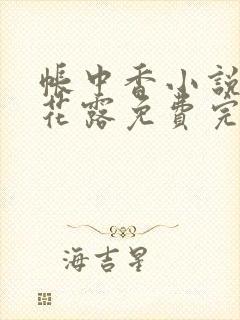 帳中香小說
花露免費完
海吉星